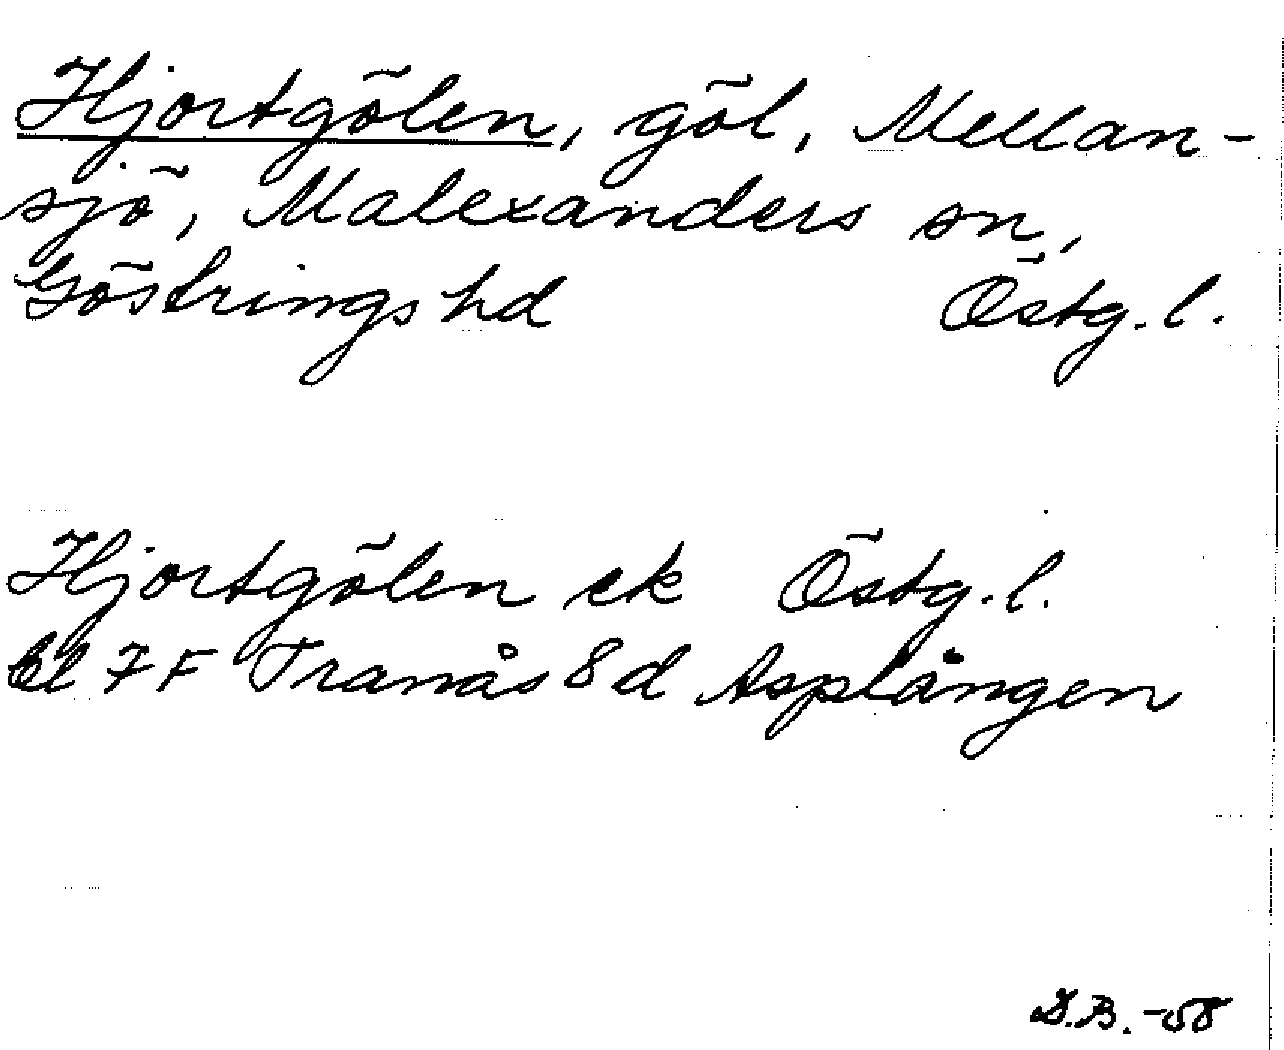 Hjortgölen, göl, Mellan-
sjö, Malexanders sn,
Göstrings hd Östg. l.
Hjortgölen ek Östg. l.
bl 7 F Tranås 8 d Asplången
D.B. -58